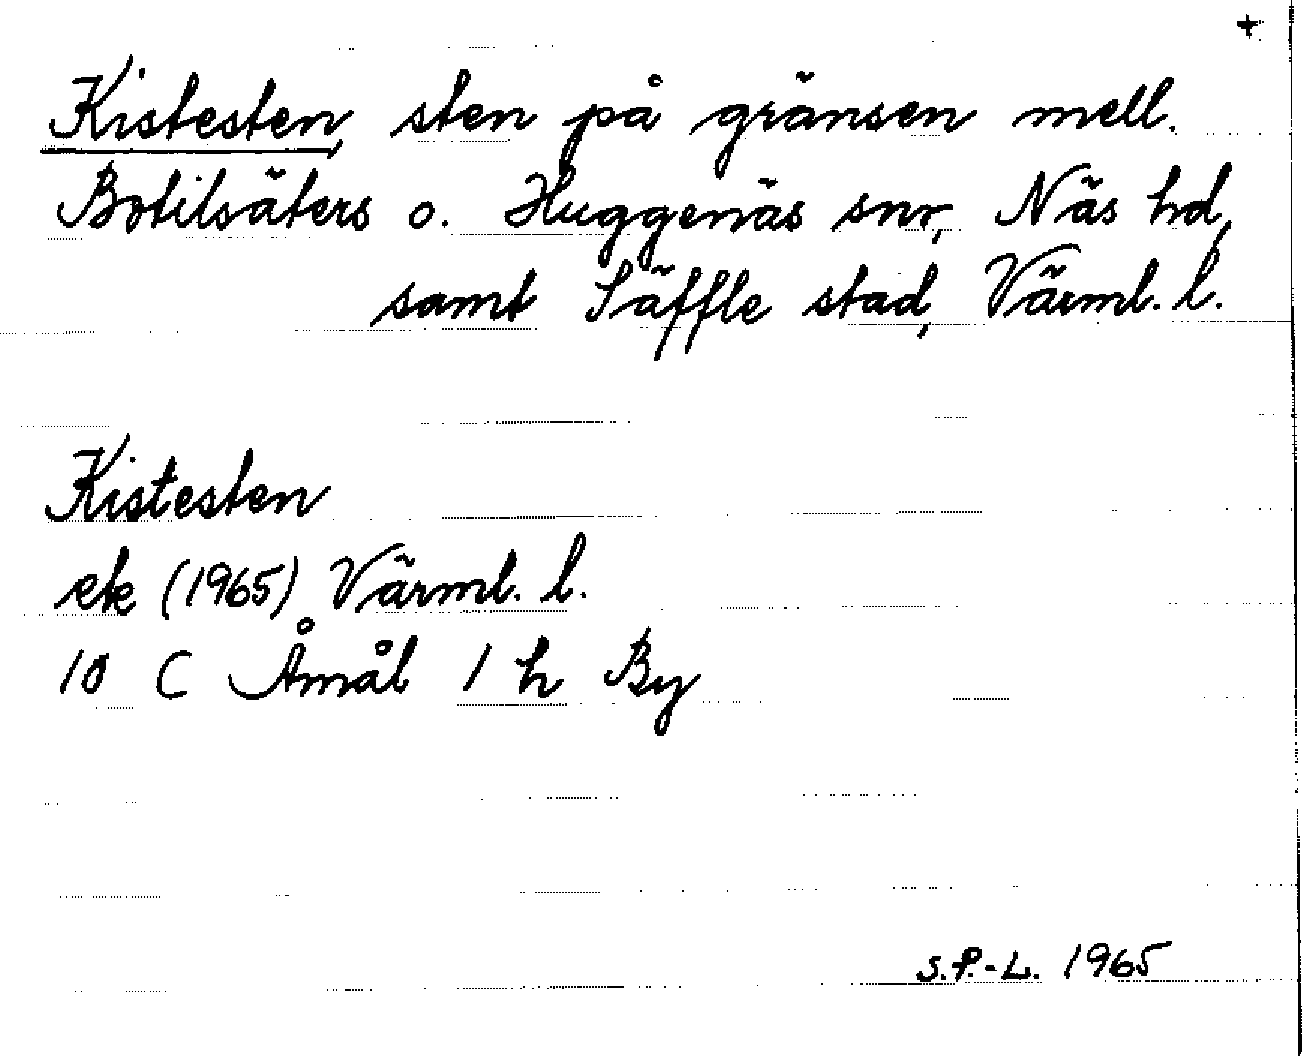 +
Kistesten, sten på gränsen mell.
Botilsäters o. Huggenäs snr, Näs hd,
samt Säffle stad, Värml. l.
Kistesten
ek (1965) Värml. l.
10 C Åmål 1 h By
S.P.-L. 1965